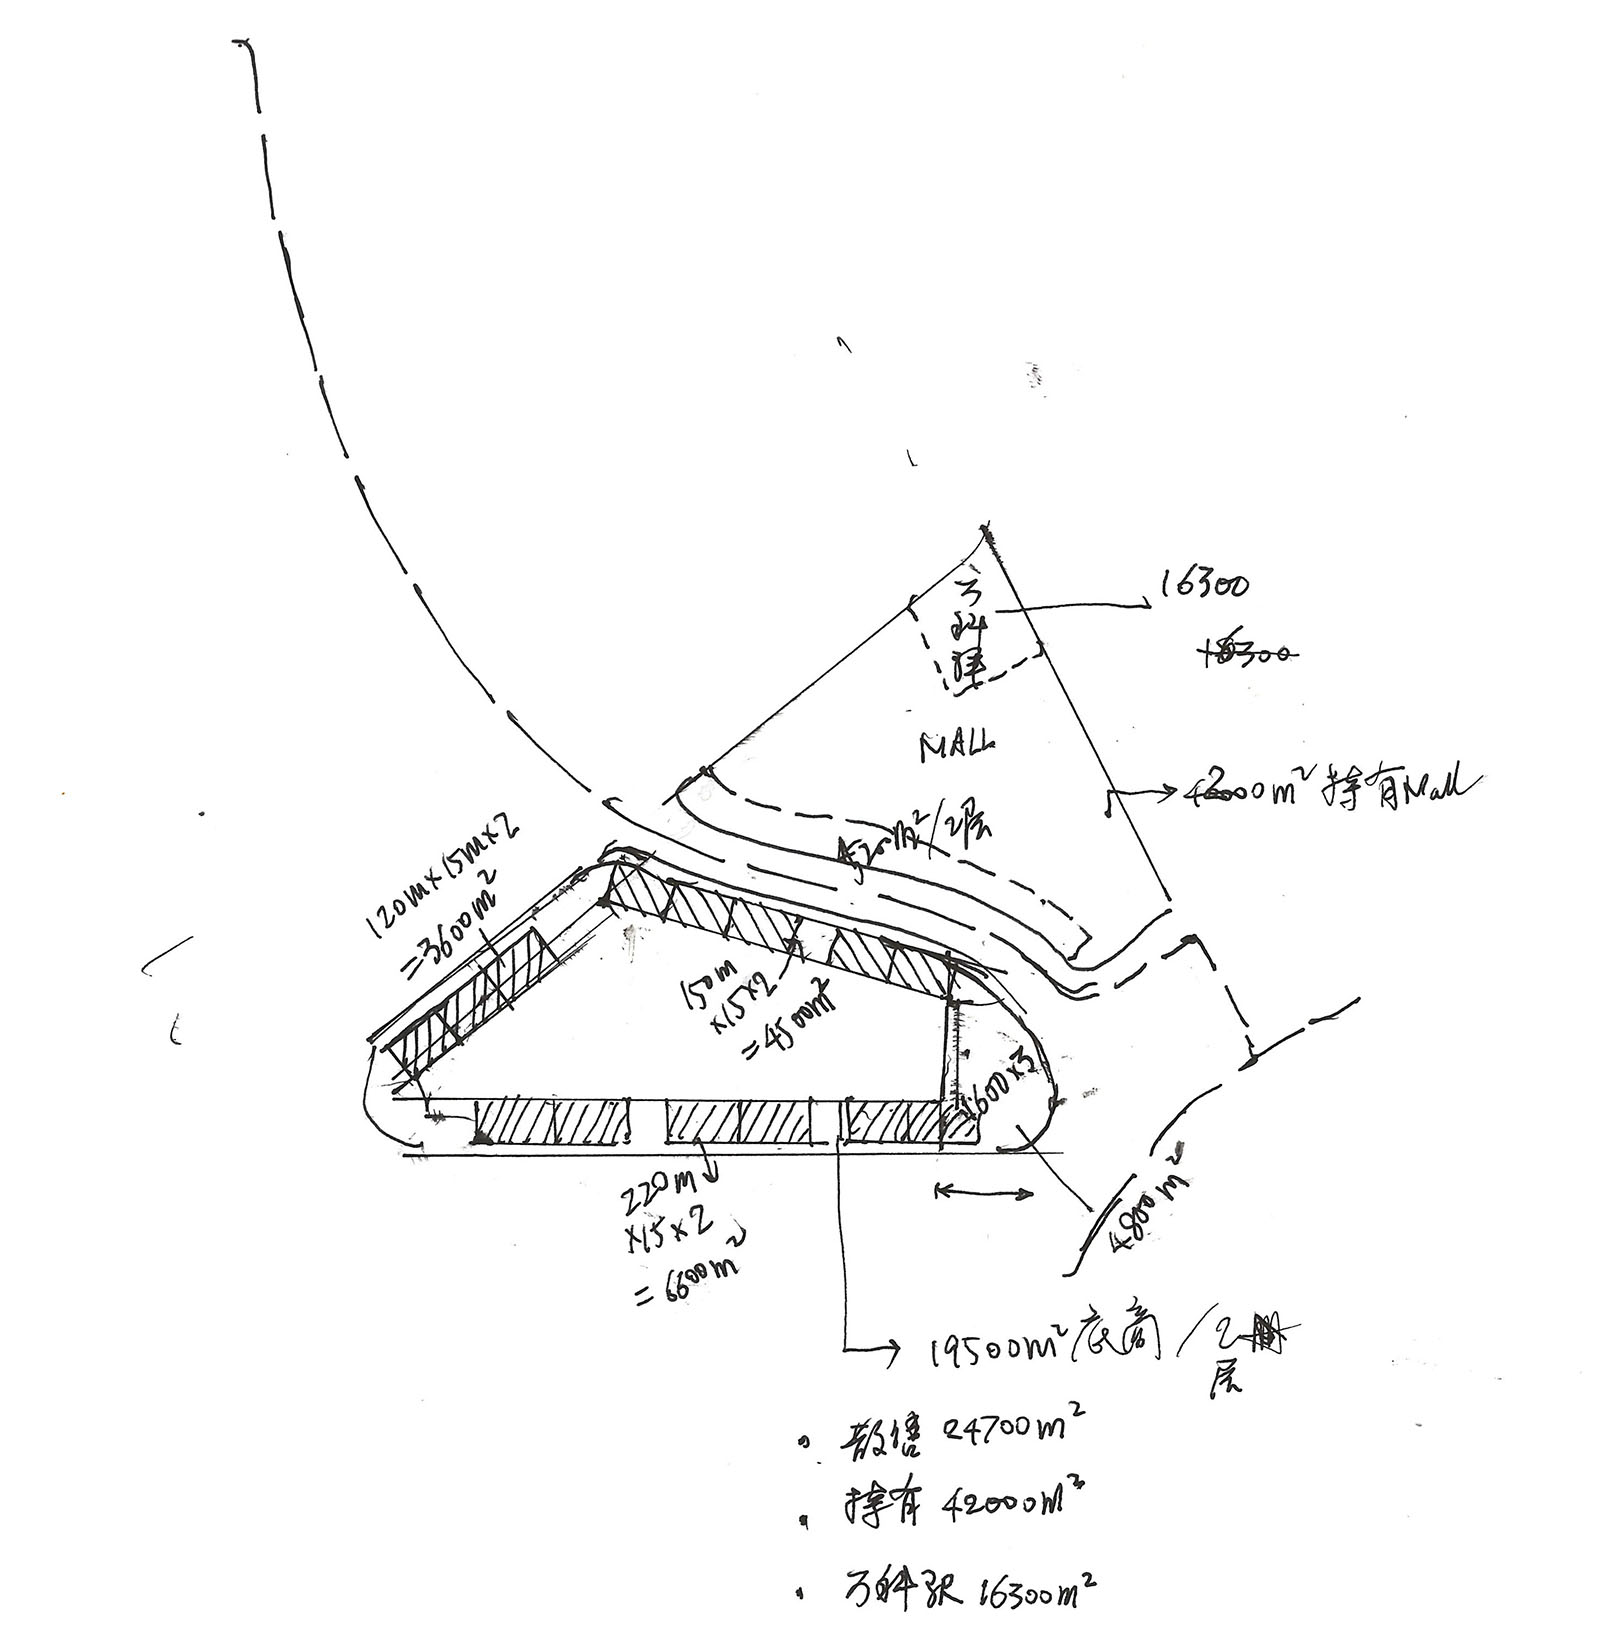 万
科
驿
16300
MALL
42000m² 持有Mall
m²/2层
120m×15m×2
=3600m²
150m
×15×2
=4500m²
1600×3
4800m²
220m
×15×2
=6600m²
19500m²底商/2
层
• 散售 24700m²
• 持有 42000m²
• 万科驿 16300m²